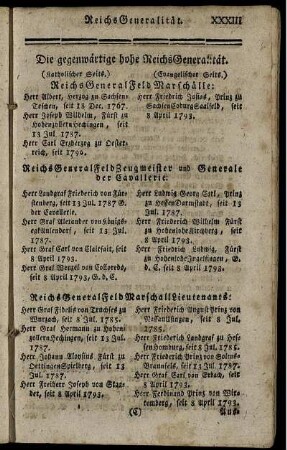 ReichsGeneralität. XXXIII
Die gegenwärtige hohe ReichsGeneralität.
(Katholischer Seits.)
(Evangelischer Seits.)
ReichsGeneralFeldMarschälle:
Herr Albert, Herzog zu Sachsen
Teschen, seit 18 Dec. 1767.
Herr Joseph Wilhelm, Fürst zu
HohenzollernHechingen, seit
13 Jul. 1787.
Herr Carl Erzherzog zu Oester-
reich, seit 1796.
Herr Friedrich Josias, Prinz zu
SachsenCoburgSaalfeld, seit
8 April 1793.
ReichsGeneralFeldZeugmeister und Generale
der Cavallerie:
Herr Landgraf Friederich von Für-
stenberg, seit 13 Jul. 1787 G.
der Cavallerie.
Herr Graf Alexander von Königs-
eckAulendorf, seit 13 Jul.
1787.
Herr Graf Carl von Clairfait, seit
8 April 1793.
Herr Graf Wenzel von Colloredo,
seit 8 April 1793, G. d. C.
Herr Ludwig Georg Carl, Prinz
zu HessenDarmstadt, seit 13
Jul. 1787.
Herr Friedrich Wilhelm Fürst
zu HohenloheKirchberg, seit
8 April 1793.
Herr Friedrich Ludwig, Fürst
zu HohenloheIngelfingen, G.
d. C. seit 8 April 1793.
ReichsGeneralFeldMarschallLieutenants:
Herr Graf Fidelis von Truchseß zu
Wurzach, seit 8 Jul. 1785.
Herr Graf Hermann zu Hohen-
zollernHechingen, seit 13 Jul.
1787.
Herr Johann Aloysius Fürst zu
OettingenSpielberg, seit 13
Jul. 1787.
Herr Freiherr Joseph von Staa-
der, seit 8 April 1793.
Herr Friedrich August Prinz von
NassauUsingen, seit 8 Jul.
1785.
Herr Friederich Landgraf zu Hes-
senHomburg, seit 8 Jul. 1785.
Herr Friederich Prinz von Solms-
Braunfels, seit 13 Jul. 1787.
Herr Graf Carl von Erbach, seit
8 April 1793.
Herr Ferdinand Prinz von Wir-
temberg, seit 8 April 1793.
(C)